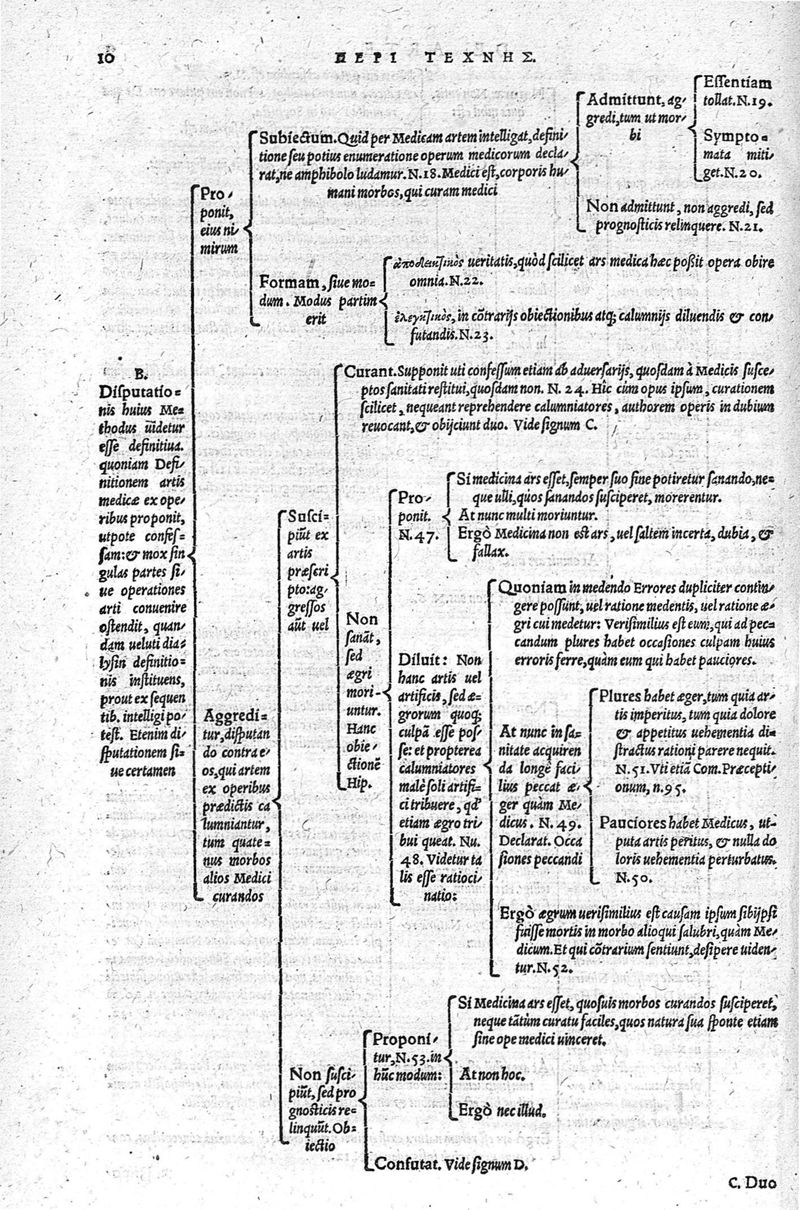 10
ΠΕΡΙ ΤΕΧΝΗΣ.
B.
Disputatio=
nis huius Me=
thodus uidetur
esse definitiua.
quoniam Defi=
nitionem artis
medicæ ex ope=
ribus proponit,
utpote confes=
sam: & mox sin
gulas partes si=
ue operationes
arti conuenire
ostendit, quan=
dam ueluti dia=
lysin definitio=
nis instituens,
prout ex sequen
tib. intelligi po=
test. Etenim di=
sputationem si=
ue certamen
Pro=
ponit,
eius ni=
mirum
Subiectum. Quid per Medicam artem intelligat, defini=
tione seu potius enumeratione operum medicorum decla=
rat, ne amphibolo ludamur. N.18. Medici est, corporis hu=
mani morbos, qui curam medici
Admittunt, ag=
gredi, tum ut mor=
bi
Essentiam
tollat. N.19.
Sympto=
mata miti=
get. N.20.
Non admittunt, non aggredi, sed
prognosticis relinquere. N.21.
Formam, siue mo=
dum. Modus partim
erit
ἀποδεικτικὸς ueritatis, quòd scilicet ars medica hæc possit opera obire
omnia. N.22.
ἐλεγκτικὸς, in cõtrarijs obiectionibus atq; calumnijs diluendis & con=
futandis. N.23.
Aggredi=
tur, disputan
do contra e=
os, qui artem
ex operibus
prædictis ca
lumniantur,
tum quate=
nus morbos
alios Medici
curandos
Susci=
piũt ex
artis
præscri
pto: ag=
gressos
aũt uel
Curant. Supponit uti confessum etiam ab aduersarijs, quosdam à Medicis susce=
ptos sanitati restitui, quosdam non. N. 24. Hîc cùm opus ipsum, curationem
scilicet, nequeant reprehendere calumniatores, authorem operis in dubium
reuocant, & obijciunt duo. Vide signum C.
Non
sanãt,
sed
ægri
mori=
untur.
Hanc
obie=
ctionẽ
Hip.
Pro=
ponit.
N.47.
Si medicina ars esset, semper suo fine potiretur sanando, ne=
que ulli, quos sanandos susciperet, morerentur.
At nunc multi moriuntur.
Ergò Medicina non est ars, uel saltem incerta, dubia, &
fallax.
Diluit: Non
hanc artis uel
artificis, sed æ=
grorum quoq;
culpã esse pos=
se: et propterea
calumniatores
malè soli artifi=
ci tribuere, qđ
etiam ægro tri
bui queat. Nu.
48. Videtur ta
lis esse ratioci=
natio:
Quoniam in medendo Errores dupliciter contin=
gere possunt, uel ratione medentis, uel ratione æ=
gri cui medetur: Verisimilius est eum, qui ad pec=
candum plures habet occasiones culpam huius
erroris ferre, quàm eum qui habet pauciores.
At nunc in sa=
nitate acquiren
da longè faci=
lius peccat æ=
ger quàm Me=
dicus. N.49.
Declarat. Occa
siones peccandi
Plures habet æger, tum quia ar=
tis imperitus, tum quia dolore
& appetitus uehementia di=
stractus rationi parere nequit.
N.51. Vti etiã Com. Præcepti=
onum, n.95.
Pauciores habet Medicus, ut=
puta artis peritus, & nulla do
loris uehementia perturbatus.
N.50.
Ergò ægrum uerisimilius est causam ipsum sibijpsi
fuisse mortis in morbo alioqui salubri, quàm Me=
dicum. Et qui cõtrarium sentiunt, desipere uiden=
tur. N.52.
Non susci=
piũt, sed pro
gnosticis re=
linquũt. Ob=
iectio
Proponi=
tur, N.53. in
hũc modum:
Si Medicina ars esset, quosuis morbos curandos susciperet,
neque tãtùm curatu faciles, quos natura sua sponte etiam
sine ope medici uinceret.
At non hoc.
Ergò nec illud.
Confutat. Vide signum D.
C. Duo